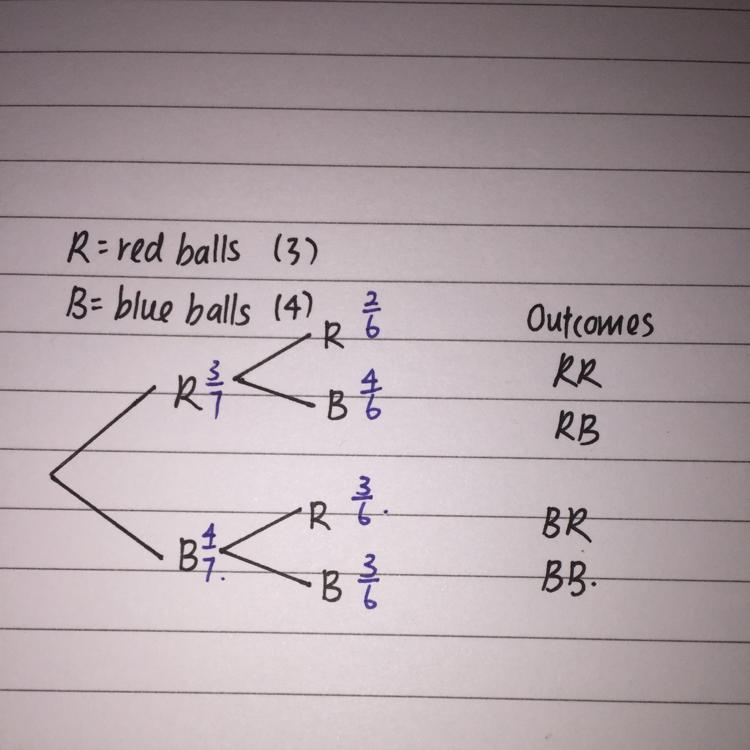 R = red balls (3)
B = blue balls (4)
Outcomes
R 3/7
R 2/6
RR
B 4/6
RB
B 4/7.
R 3/6.
BR
B 3/6
BB.